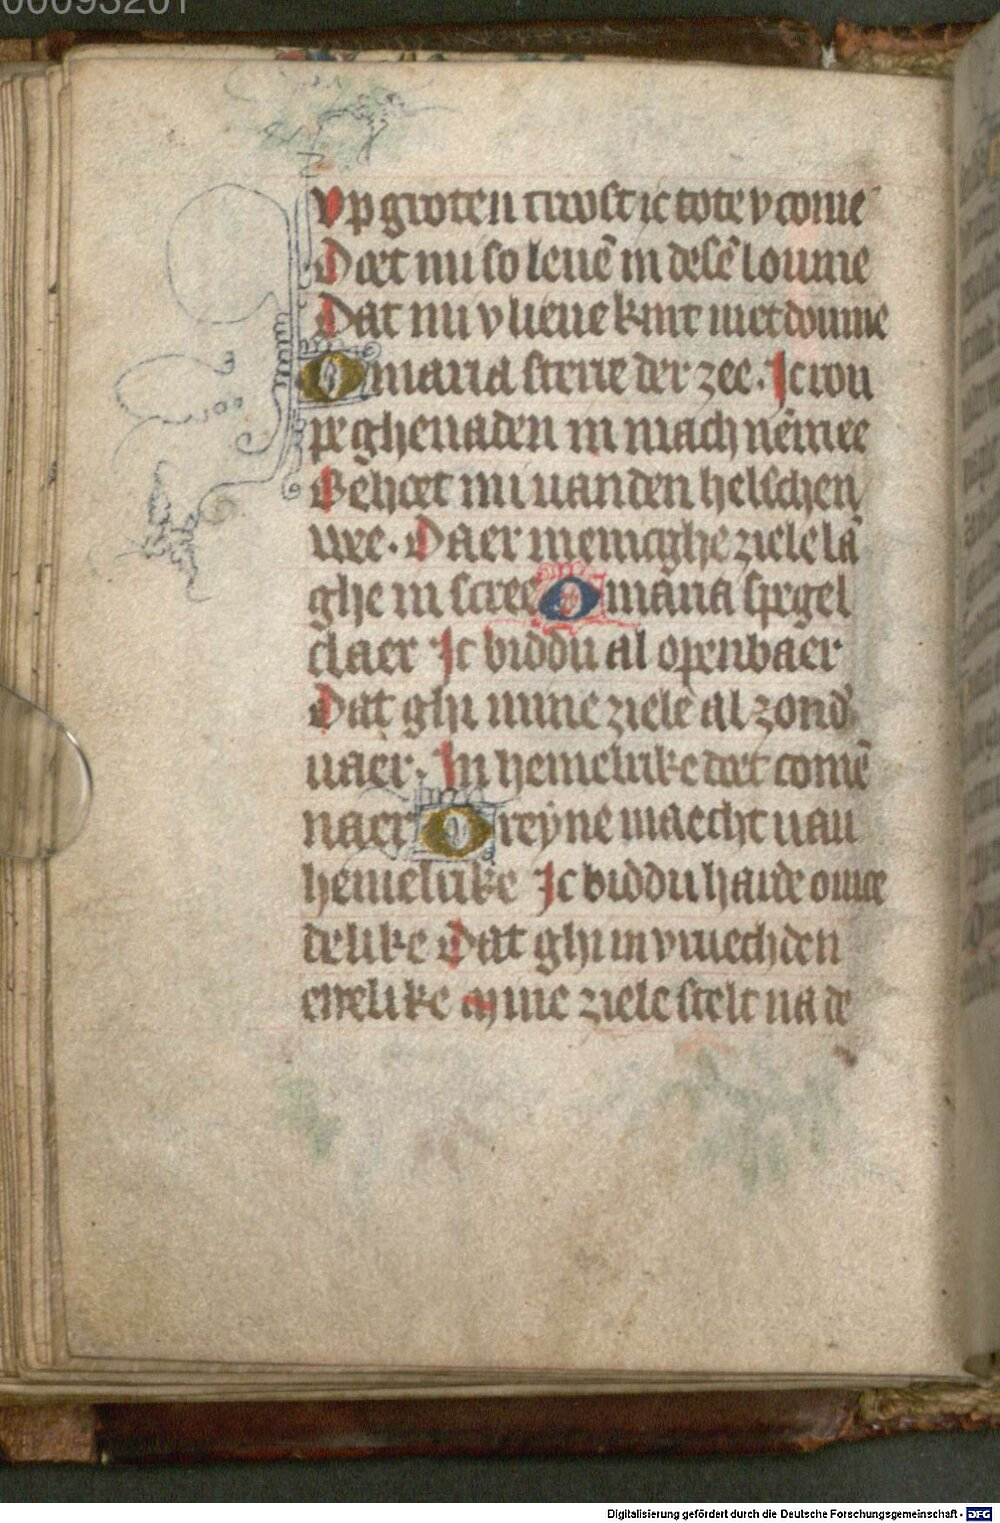 00093201
Vp groten troost ic tote v come
Doet mi so leuē in desē loome
Dat mi v lieue kint niet doume
O maria sterre der zee. Ic rou
pe ghenaden in mach nēmee
Behoet mi uanden helschen
wee. Daer menighe ziele lā
ghe in scree O maria spegel
claer Ic biddu al openbaer
Dat ghi mine ziele al zond'
uaer. In hemelrike doet comē
naer O reyne maecht uan
hemelrike Ic biddu harde omoe
delike Dat ghi in vruechden
ewelike Mine ziele stelt na de
Digitalisierung gefördert durch die Deutsche Forschungsgemeinschaft - DFG